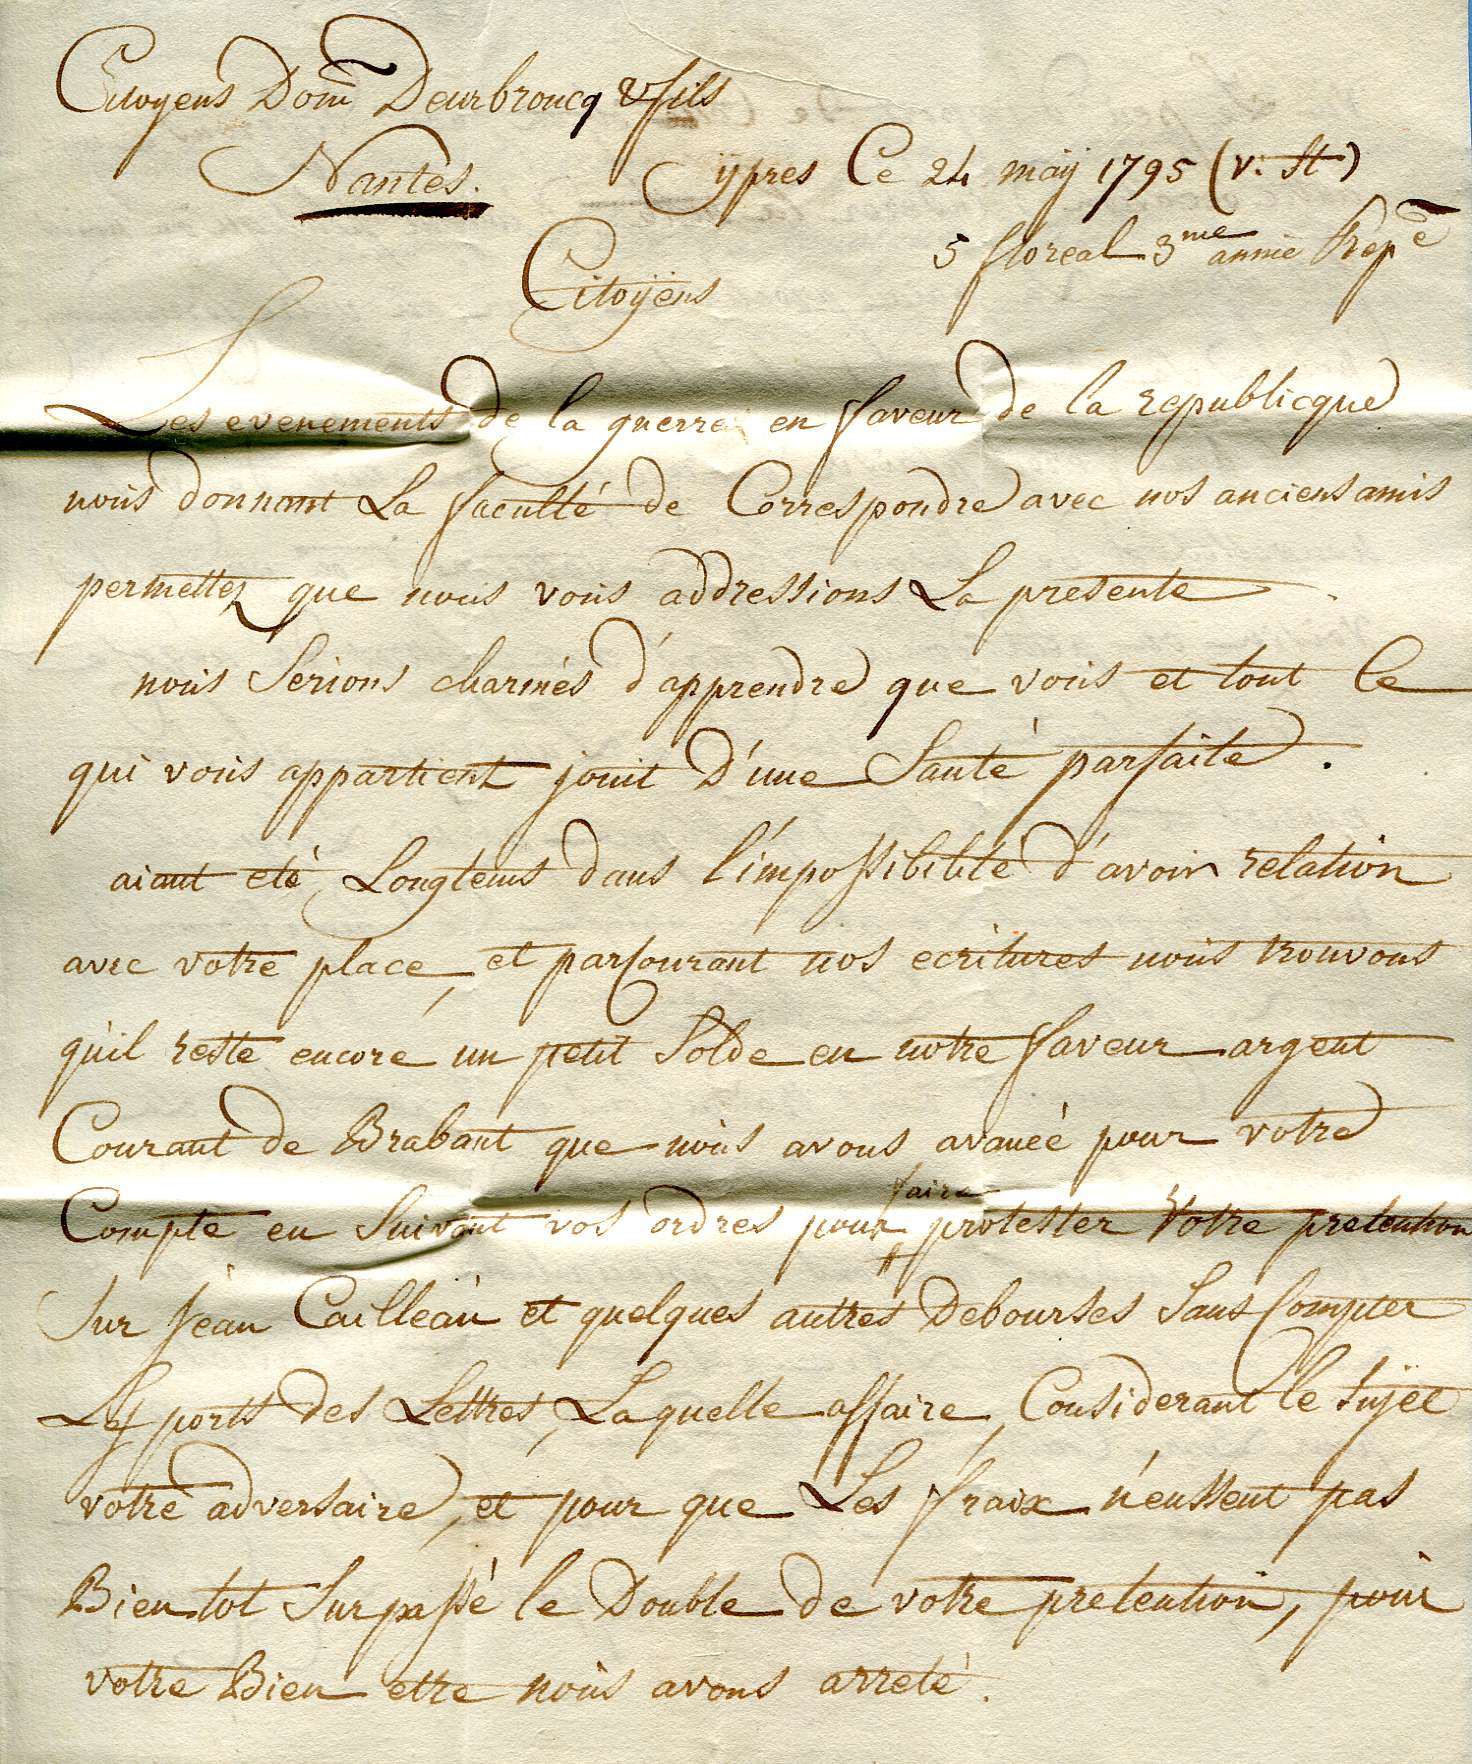 Citoyens Dom Deurbroucq & fils
Nantes.
ÿpres Ce 24 maÿ 1795 (v: st)
5 floreal 3me année Repe
Citoÿens
Les evenements de la guerre en faveur de la republicque
nous donnant La faculté de Correspondre avec nos anciens amis
permettez que nous vous addressions La presente
nous Serions charmés d'apprendre que vous et tout Ce
qui vous appartient jouit D'une Santé parfaite.
aiant eté Longtems dans l'impossibilité d'avoir relation
avec votre place, et parcourant nos ecritures nous trouvons
qu'il reste encore un petit Solde en notre faveur argent
Courant de Brabant que nous avons avancé pour votre
Compte en Suivant vos ordres pour faire protester Votre pretention
Sur Jean Cailleau et quelques autres Debourses Sans Compter
Les ports des Lettres, Laquelle affaire, Considerant le Sujet
votre adversaire, et pour que Les fraix n'eussent pas
Bientot Surpassé le Double de votre pretention, pour
votre Bien etre nous avons arreté.